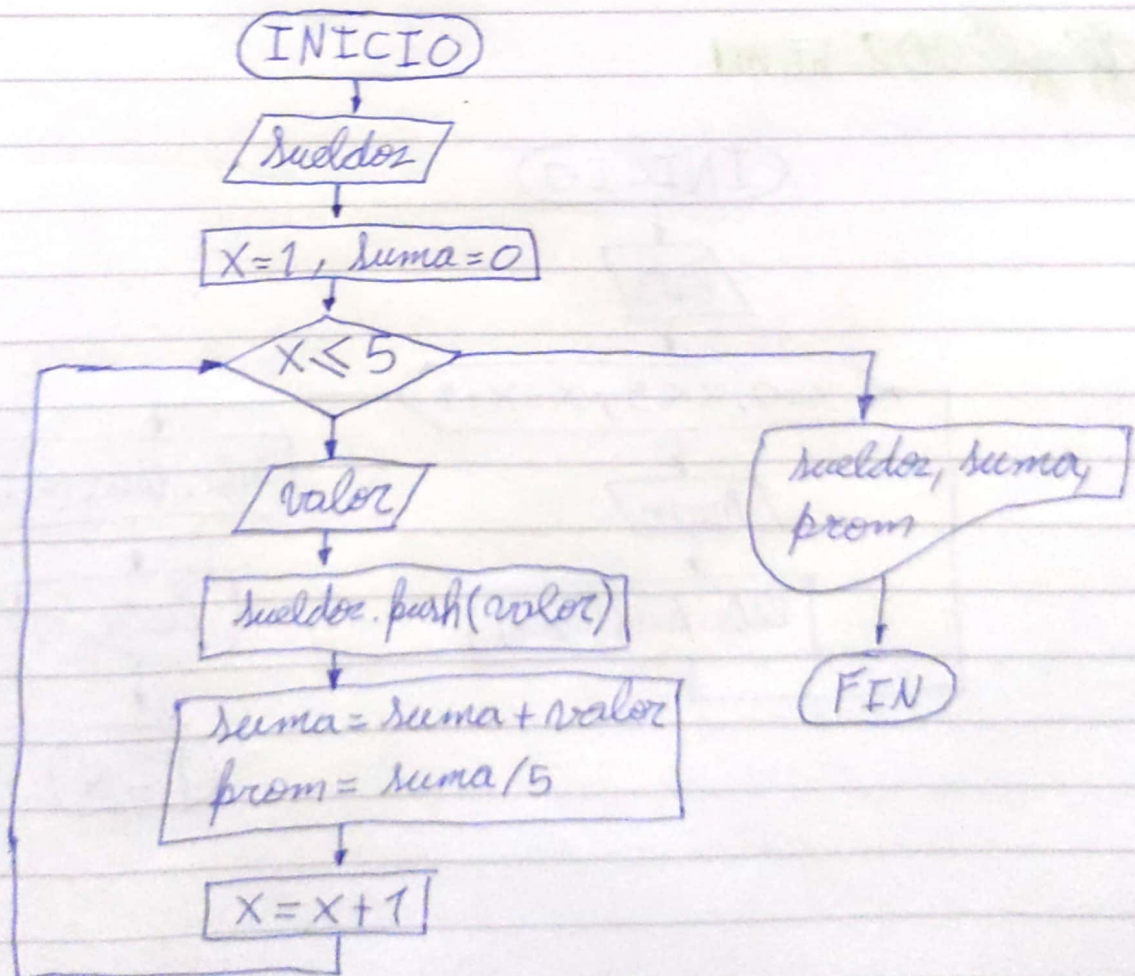 INICIO
sueldos
x=1, suma=0
x≤5
valor
sueldos.push(valor)
suma=suma+valor
prom=suma/5
x=x+1
sueldos, suma,
prom
FIN